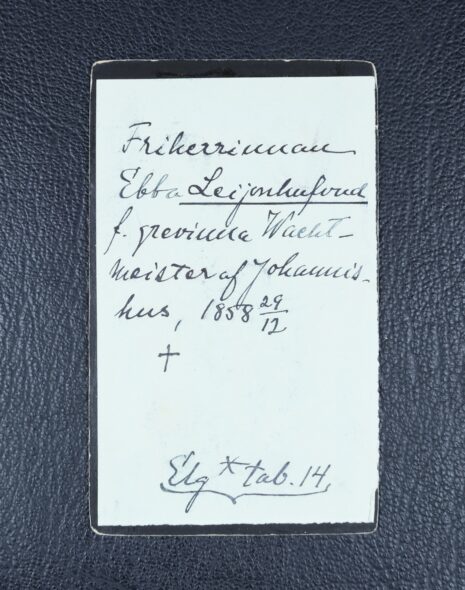 Friherrinnan
Ebba Leijonhufvud
f. grevinna Wacht-
meister af Johannis-
hus, 1858 29/12
†
Elg * tab. 14.